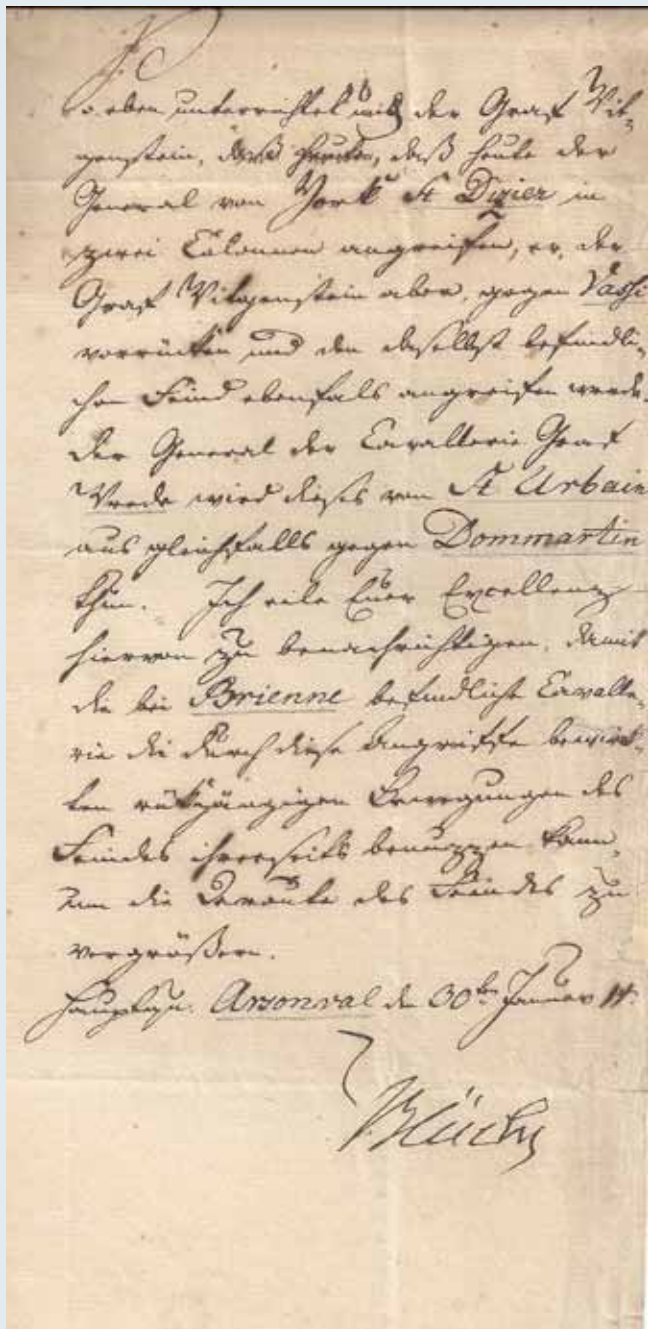 So eben unterrichtet mich der Graf Vit-
genstein, daß heute der
General von York St Dizier in
zwei Colonnen angreiffen, er, der
Graf Vitgenstein aber, gegen Vassi
vorrücken und den daselbst befindli-
chen Feind ebenfals angreifen werde.
Der General der Cavallerie Graf
Wrede wird dieses von St Urbain
aus gleichfalls gegen Dommartin
thun. Ich eile Euer Excellenz
hiervon zu benachrichtigen, damit
die bei Brienne befindliche Cavalle-
rie die durch diese Angriffe bewirk-
ten rükgängigen Bewegungen des
Feindes ihrerseits benuzzen kann,
um die Deroute des Feindes zu
vergrößern.
Hauptqu. Arsonval d 30ten Januar 14.
Blücher